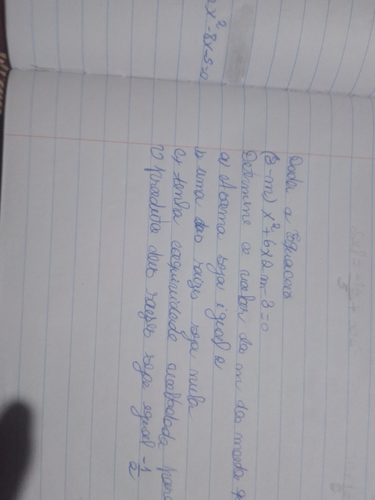 x²-8x-5=0
Dada a Equação
(3-m)x²+6x2m-3=0
Determine o valor de m de modo q
a) A soma seja igual a
b uma das raizes seja nula
c, tenha concavidade voltada para
O produto das raizes seja igual -1/2